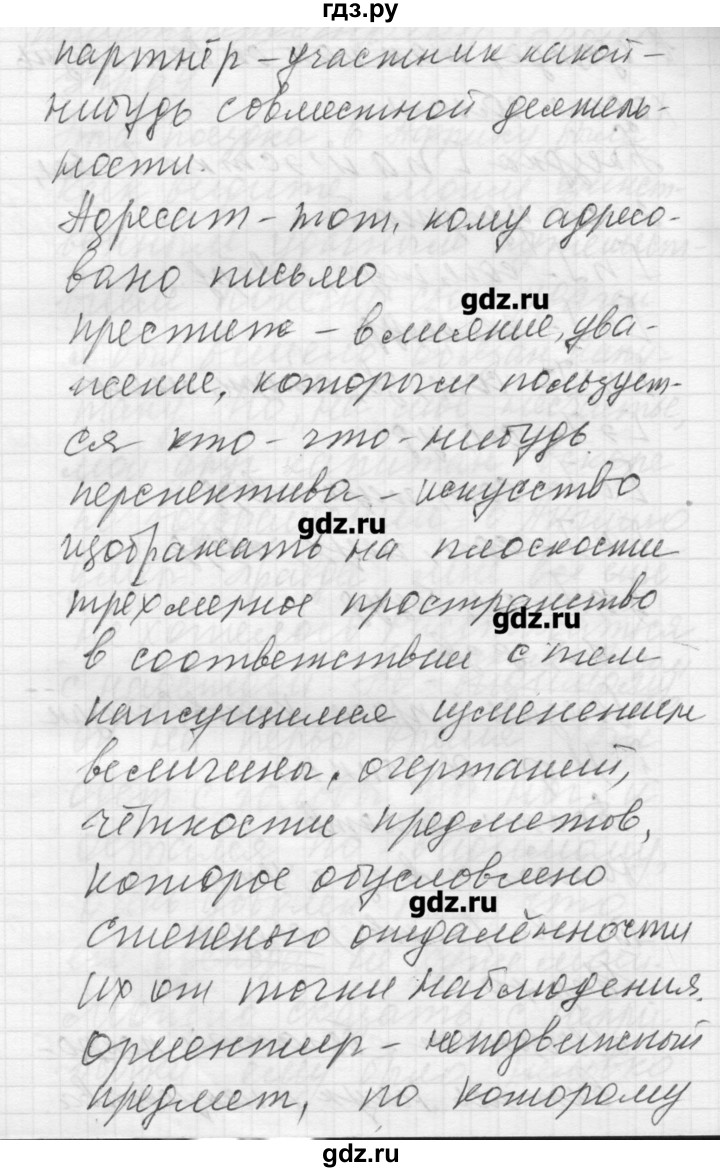 гдз.ру
партнёр – участник какой-
нибудь совместной деятель-
ности.
Адресат – тот, кому адресо-
вано письмо
gdz.ru
престиж – влияние, ува-
жение, которым пользует-
ся кто-что-нибудь
перспектива – искусство
gdz.ru
изображать на плоскости
трёхмерное пространство
gdz.ru
в соответствии с тем
кажущимся изменением
величины, очертаний,
чёткости предметов,
которое обусловлено
gdz.ru
степенью отдалённости
их от точки наблюдения.
Ориентир – неподвижный
предмет, по которому
gdz.ru